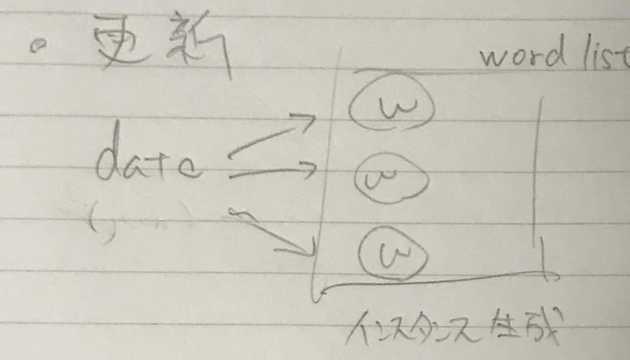 ・更新
word list
date
w
w
w
インスタンス生成